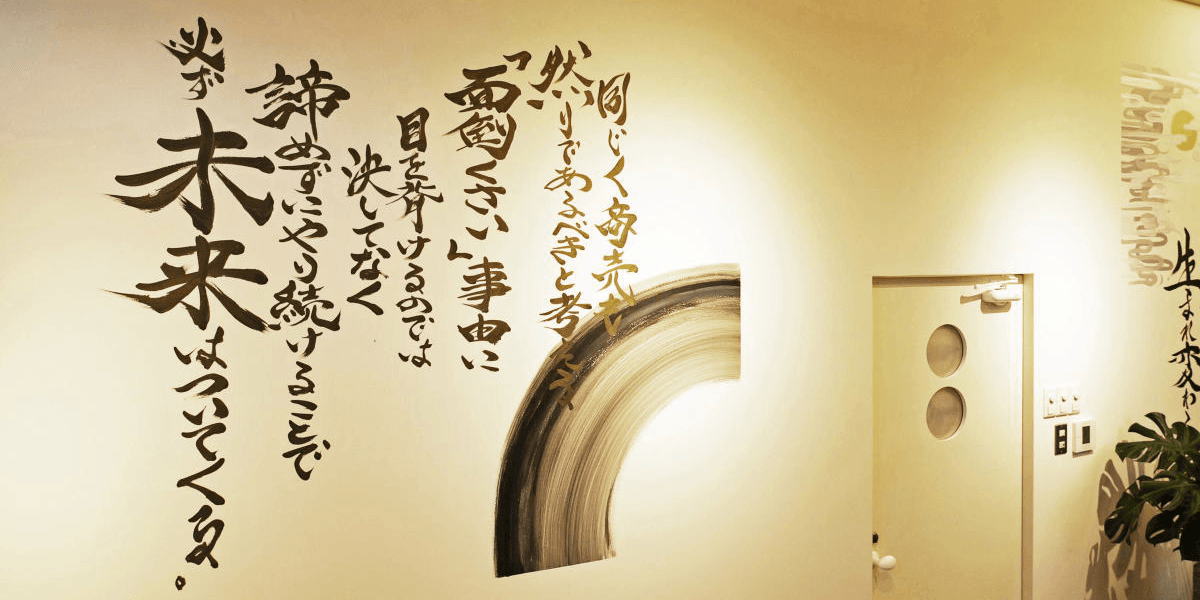 同じく商売も
然りであるべきと考える。
「面倒くさい」事由に
目を背けるのでは
決してなく
諦めずにやり続けることで
必ず
未来はついてくる。
生まれ変わ